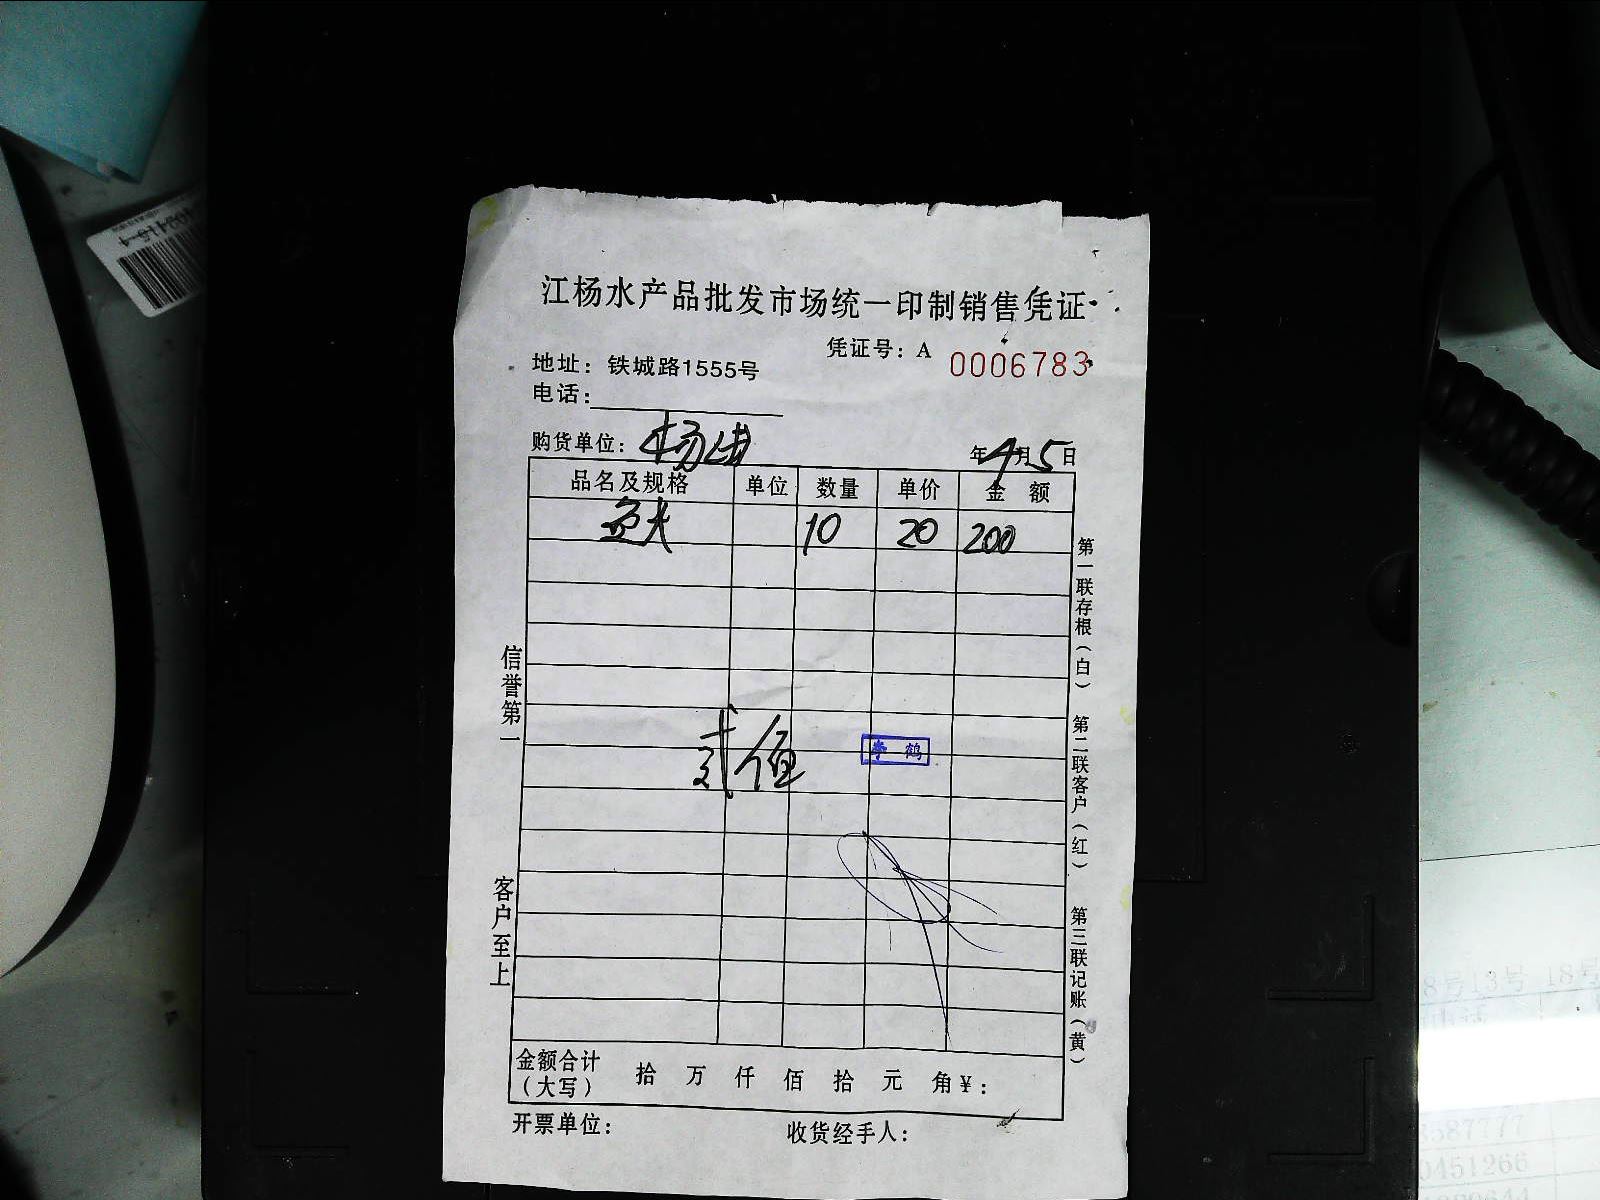 江杨水产品批发市场统一印制销售凭证
凭证号：A 0006783
地址：铁城路1555号
电话：
购货单位：
年4月5日
品名及规格 单位 数量 单价 金额
10 20 200
贰佰
鹤
信誉第一
客户至上
第一联存根（白）
第二联客户（红）
第三联记账（黄）
金额合计（大写） 拾 万 仟 佰 拾 元 角 ¥：
开票单位：
收货经手人：
8号13号 18号
3587777
0451266